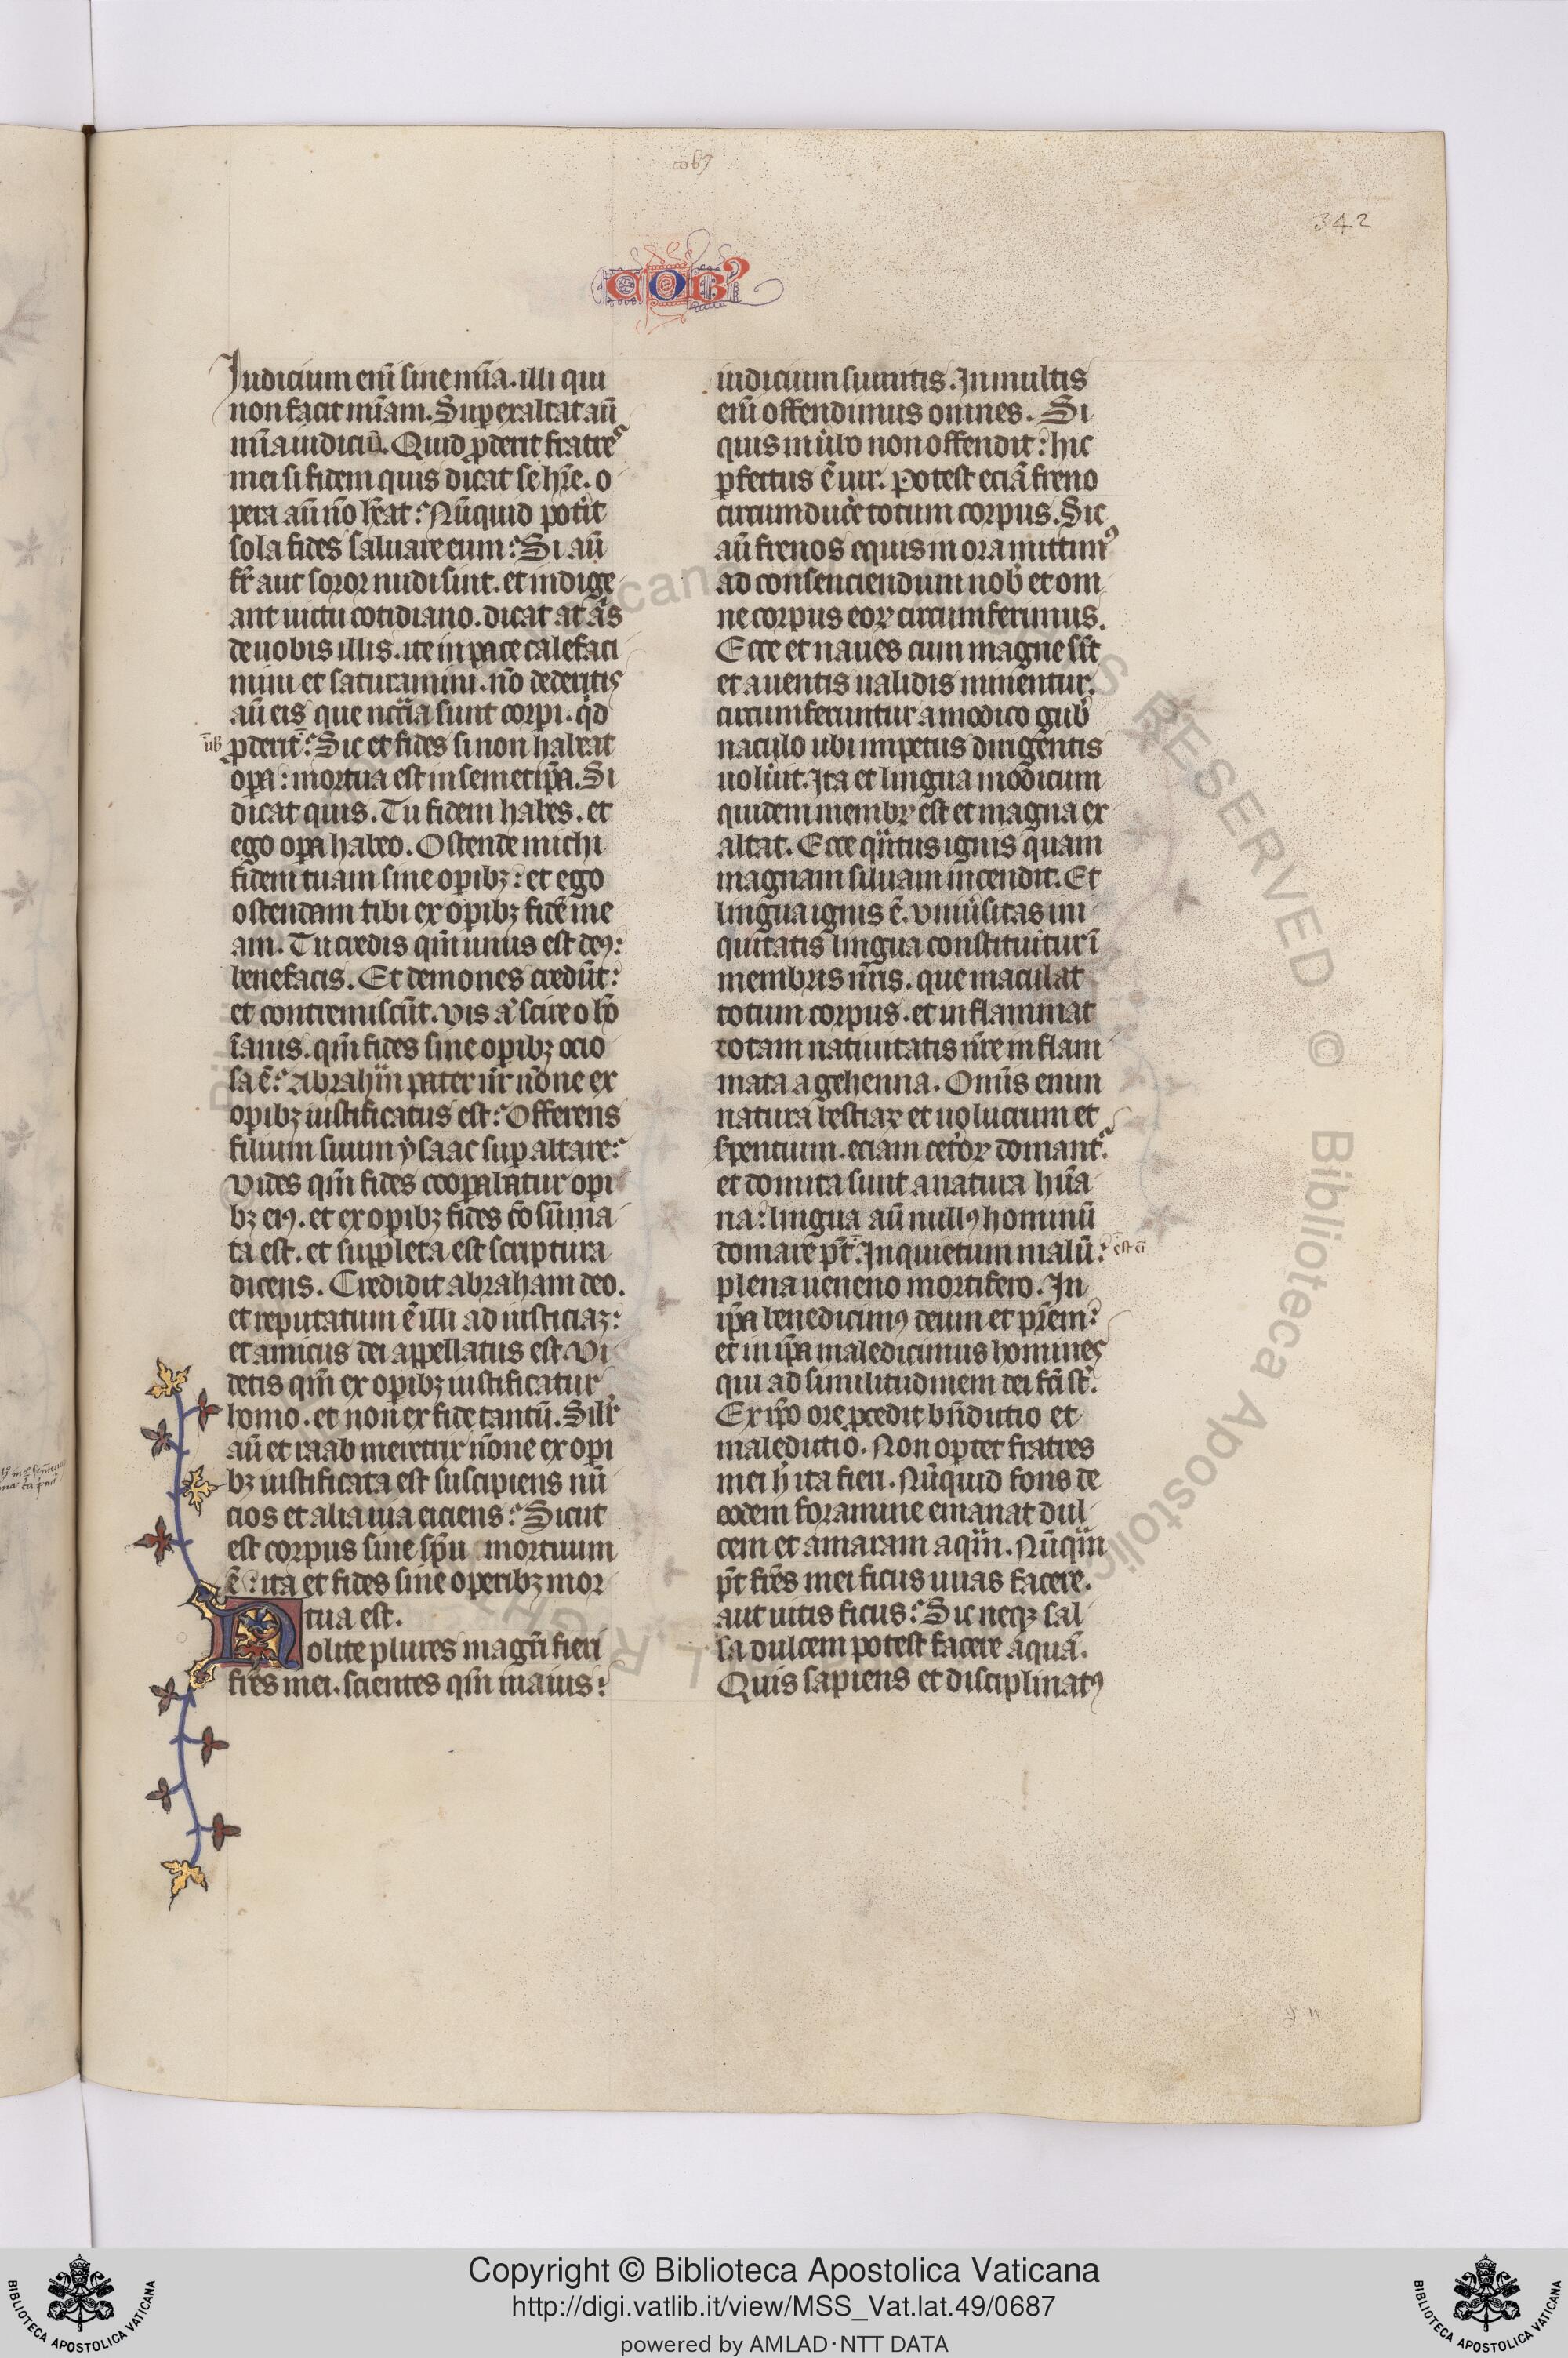 cobꝯ
342
COBꝰ
Judicium enī sine mīa. illi qui
non facit mīam. Suꝑexaltat aū
mīa iudiciū. Quid ꝓderit fratres
mei si fidem quis dicat se hr̄e. o
pera aū nō hēat? Nūquid potīt
sola fides saluare eum? Si aū
fr̄ aut soror nudi sint. et indige
ant uictu cotidiano. dicat at̄ ās
de uobis illis. ite in pace calefaci
mini et saturamini. nō dederitis
aū eis que nccīa sunt corpi. qd̄
ꝓderit? Sic et fides si non habeat
oꝑa: mortua est in semetip̄a. Si
dicat quis. Tu fidem habes. et
ego oꝑa habeo. Ostende michi
fidem tuam sine opibꝫ: et ego
ostendam tibi ex opibꝫ fidē me
am. Tu credis qm̄ unus est deꝰ:
benefacis. Et demones credūt:
et contremiscūt. vis aͧ scire o hō
īanis. qm̄ fides sine opibꝫ ocio
sa ē? Abrahm̄ pater nr̄ nōne ex
opibꝫ iustificatus est? Offerens
filium suum ysaac suꝑ altare?
Vides qm̄ fides cooꝑabatur opi
bꝫ eiꝰ. et ex opibꝫ fides cōsūma
ta est. et suppleta est scriptura
dicens. Credidit abraham deo.
et reputatum ē illi ad iusticiaꝫ:
et amicus dei appellatus est. Vi
detis qm̄ ex opibꝫ iustificatur
homo. et non ex fide tantū. Silr̄
aū et raab meretrix nōne ex opi
bꝫ iustificata est suscipiens nū
cios et alia uia eiciens? Sicut
est corpus sine sp̄u mortuum
ē: ita et fides sine operibꝫ mor
tua est.
Nolite plures magr̄i fieri
fr̄es mei. scientes qm̄ maius:
iudicium sumitis. In multis
enī offendimus omnes. Si
quis in ūbo non offendit: hic
ꝑfectus ē uir. Potest eciā freno
circumducēe totum corpus. Sic
aū frenos equis in ora mittimꝰ
ad consenciendum nob̄ et om
ne corpus eoꝝ circumferimus.
Ecce et naues cum magne sīt
et a uentis ualidis minentur.
circumferuntur a modico gub̄
naculo ubi impetus dirigentis
uolūit. Ita et lingua modicum
quidem membꝝ est et magna ex
altat. Ecce qͣntus ignis quam
magnam siluam incendit. Et
lingua ignis ē. vniūsitas ini
quitatis lingua constituitur ī
membris nr̄is. que maculat
totum corpus. et inflammat
rotam natiuitatis nr̄e inflam
mata a gehenna. Omīs enim
natura bestiaꝝ et uolucrum et
sꝑentium. eciam cet̄oꝝ domantʳ
et domita sunt a natura hūa
na: lingua aū nullꝰ hominū
domare pt̄. Inquietum malū:
est eī
plena ueneno mortifero. In
ip̄a benedicimꝰ deum et pr̄em:
et in ip̄a maledicimus homines
qui ad similitudinem dei fc̄i st̄.
Ex ip̄o ore ꝓcedit bn̄dictio et
maledictio. Non oportet fratres
mei h̄ ita fieri. Nūquid fons de
eodem foramine emanat dul
cem et amaram aqͣm. Nūqͥm
pt̄ fr̄es mei ficus uuas facere.
aut uitis ficus? Sic neqꝫ sal
sa dulcem potest facere aquā.
Quis sapiens et disciplinatꝰ
Copyright © Biblioteca Apostolica Vaticana
http://digi.vatlib.it/view/MSS_Vat.lat.49/0687
powered by AMLAD·NTT DATA
BIBLIOTECA APOSTOLICA VATICANA
BIBLIOTECA APOSTOLICA VATICANA